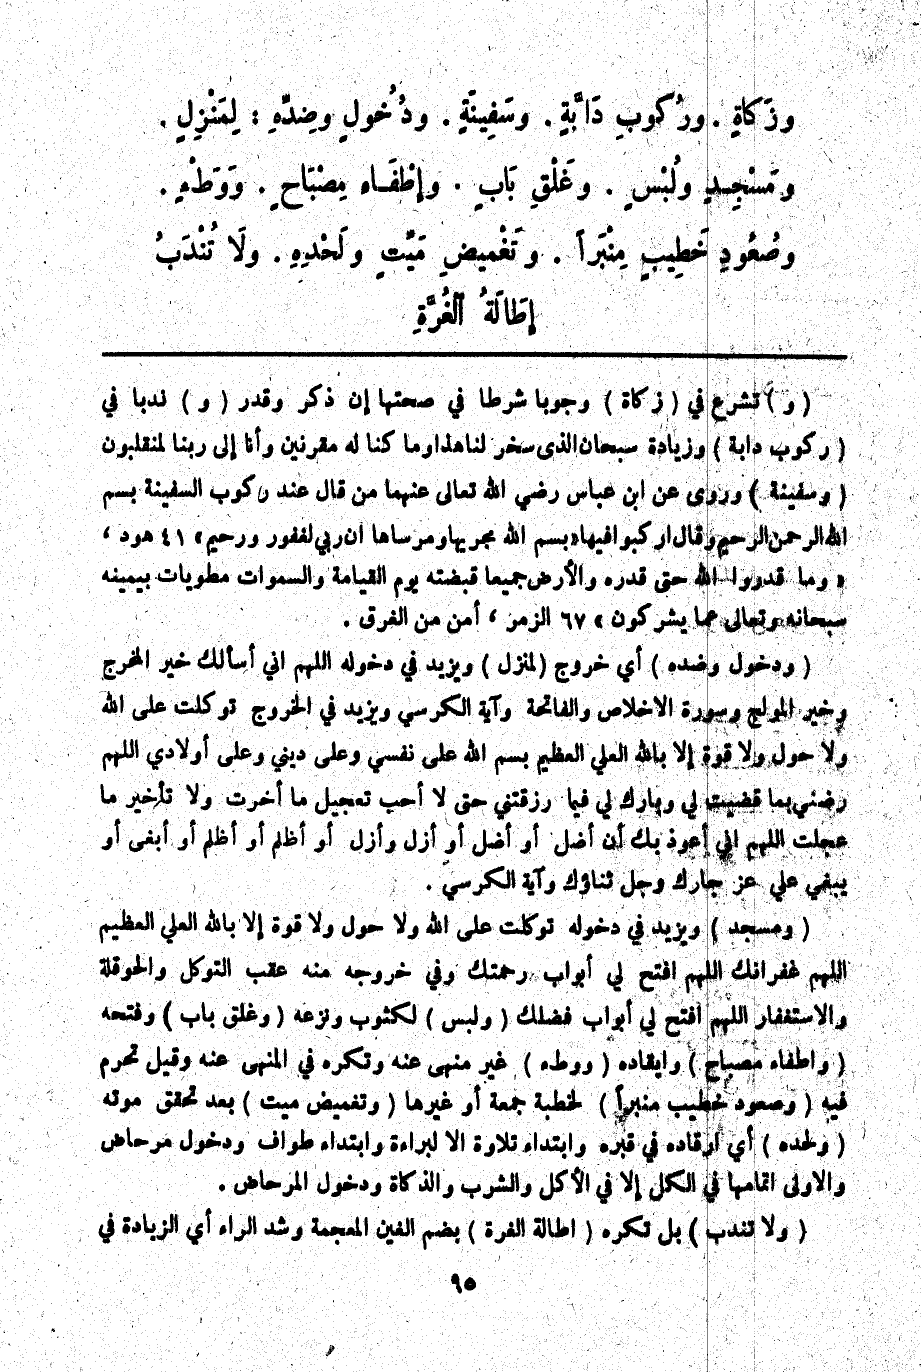 وزَكاةٍ . ورُكُوبِ دَابَّةٍ . وسَفِينَةٍ . ودُخُولٍ وضِدِّهِ : لِمَنْزِلٍ .
ومَسْجِدٍ ولُبْسٍ . وغَلْقِ بَابٍ . وإِطْفَاءِ مِصْبَاحٍ . وَوَطْءٍ .
وصُعُودِ خَطِيبٍ مِنْبَراً . وتَغْمِيضِ مَيِّتٍ ولَحْدِهِ . ولَا تُنْدَبُ
إِطَالَةُ الْغُرَّةِ
( و ) تشرع في ( زكاة ) وجوبا شرطا في صحتها إن ذكر وقدر ( و ) ندبا في
( ركوب دابة ) وزيادة سبحان الذى سخر لنا هذا وما كنا له مقرنين وأنا إلى ربنا لمنقلبون
( وسفينة ) وروى عن ابن عباس رضي الله تعالى عنهما من قال عند ركوب السفينة بسم
الله الرحمن الرحيم وقال اركبوا فيها «بسم الله مجريها ومرساها ان ربي لغفور ورحيم» ٤١ هود ،
« وما قدروا الله حق قدره والأرض جميعا قبضته يوم القيامة والسموات مطويات بيمينه
سبحانه وتعالى عما يشركون » ٦٧ الزمر ، أمن من الغرق .
( ودخول وضده ) أي خروج ( لمنزل ) ويزيد في دخوله اللهم اني أسألك خير المخرج
وخير المولج وسورة الاخلاص والفاتحة وآية الكرسي ويزيد في الخروج توكلت على الله
ولا حول ولا قوة إلا بالله العلي العظيم بسم الله على نفسي وعلى ديني وعلى أولادي اللهم
رضني بما قضيت لي وبارك لي فيما رزقتني حتى لا أحب تعجيل ما أخرت ولا تأخير ما
عجلت اللهم اني أعوذ بك أن أضل أو أضل أو أزل وأزل أو أظلم أو أظلم أو أبغى أو
يبغي علي عز جارك وجل ثناؤك وآية الكرسي .
( ومسجد ) ويزيد في دخوله توكلت على الله ولا حول ولا قوة إلا بالله العلي العظيم
اللهم غفرانك اللهم افتح لي أبواب رحمتك وفي خروجه منه عقب التوكل والحوقلة
والاستغفار اللهم افتح لي أبواب فضلك ( ولبس ) لكثوب ونزعه ( وغلق باب ) وفتحه
( واطفاء مصباح ) وايقاده ( ووطء ) غير منهى عنه وتكره في المنهى عنه وقيل تحرم
فيه ( وصعود خطيب منبراً ) لخطبة جمعة أو غيرها ( وتغميض ميت ) بعد تحقق موته
( ولحده ) أي ارقاده في قبره وابتداء تلاوة الا لبراءة وابتداء طواف ودخول مرحاض
والاولى اتمامها في الكل إلا في الأكل والشرب والذكاة ودخول المرحاض .
( ولا تندب ) بل تكره ( اطالة الغرة ) بضم الغين المعجمة وشد الراء أي الزيادة في
٩٥